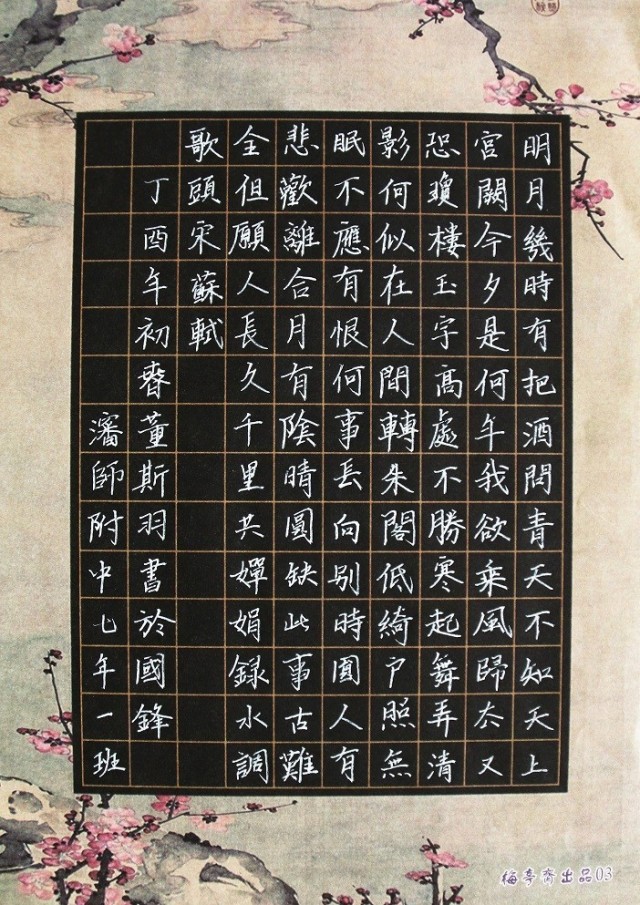 明月幾時有把酒問青天不知天上
宮闕今夕是何年我欲乘風歸去又
恐瓊樓玉宇高處不勝寒起舞弄清
影何似在人間轉朱閣低綺戶照無
眠不應有恨何事長向別時圓人有
悲歡離合月有陰晴圓缺此事古難
全但願人長久千里共嬋娟録水調
歌頭宋蘇軾
丁酉年初春董斯羽書於國鋒
瀋師附中七年一班
梅亭齋出品03